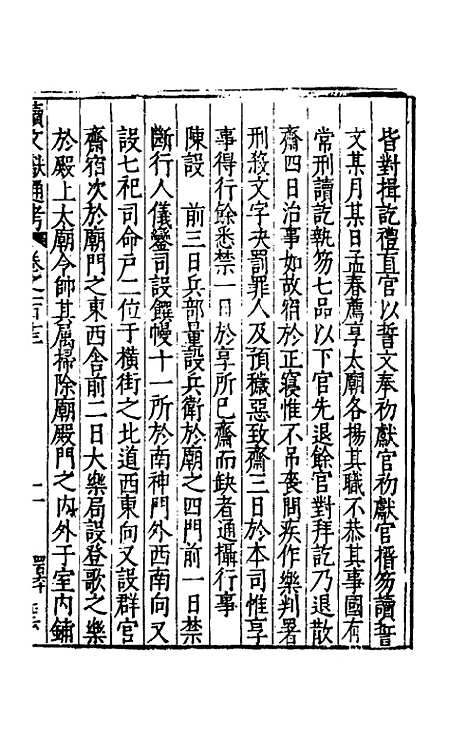 皆對揖訖禮直官以誓文奉初獻官初獻官搢笏讀誓
文某月某日孟春薦享太廟各揚其職不恭其事國有
常刑讀訖執笏七品以下官先退餘官對拜訖乃退散
齋四日治事如故宿於正寢惟不吊喪問疾作樂判署
刑殺文字決罰罪人及預穢惡致齋三日於本司惟享
事得行餘悉禁一日於享所已齋而缺者通攝行事
陳設　前三日兵部量設兵衛於廟之四門前一日禁
斷行人儀鑾司設饌幔十一所於南神門外西南向又
設七祀司命戶二位于橫街之北道西東向又設群官
齋宿次於廟門之東西舍前二日大樂局設登歌之樂
於殿上太廟令帥其屬掃除廟殿門之內外于室內鋪
續文獻通考 卷之一百十三